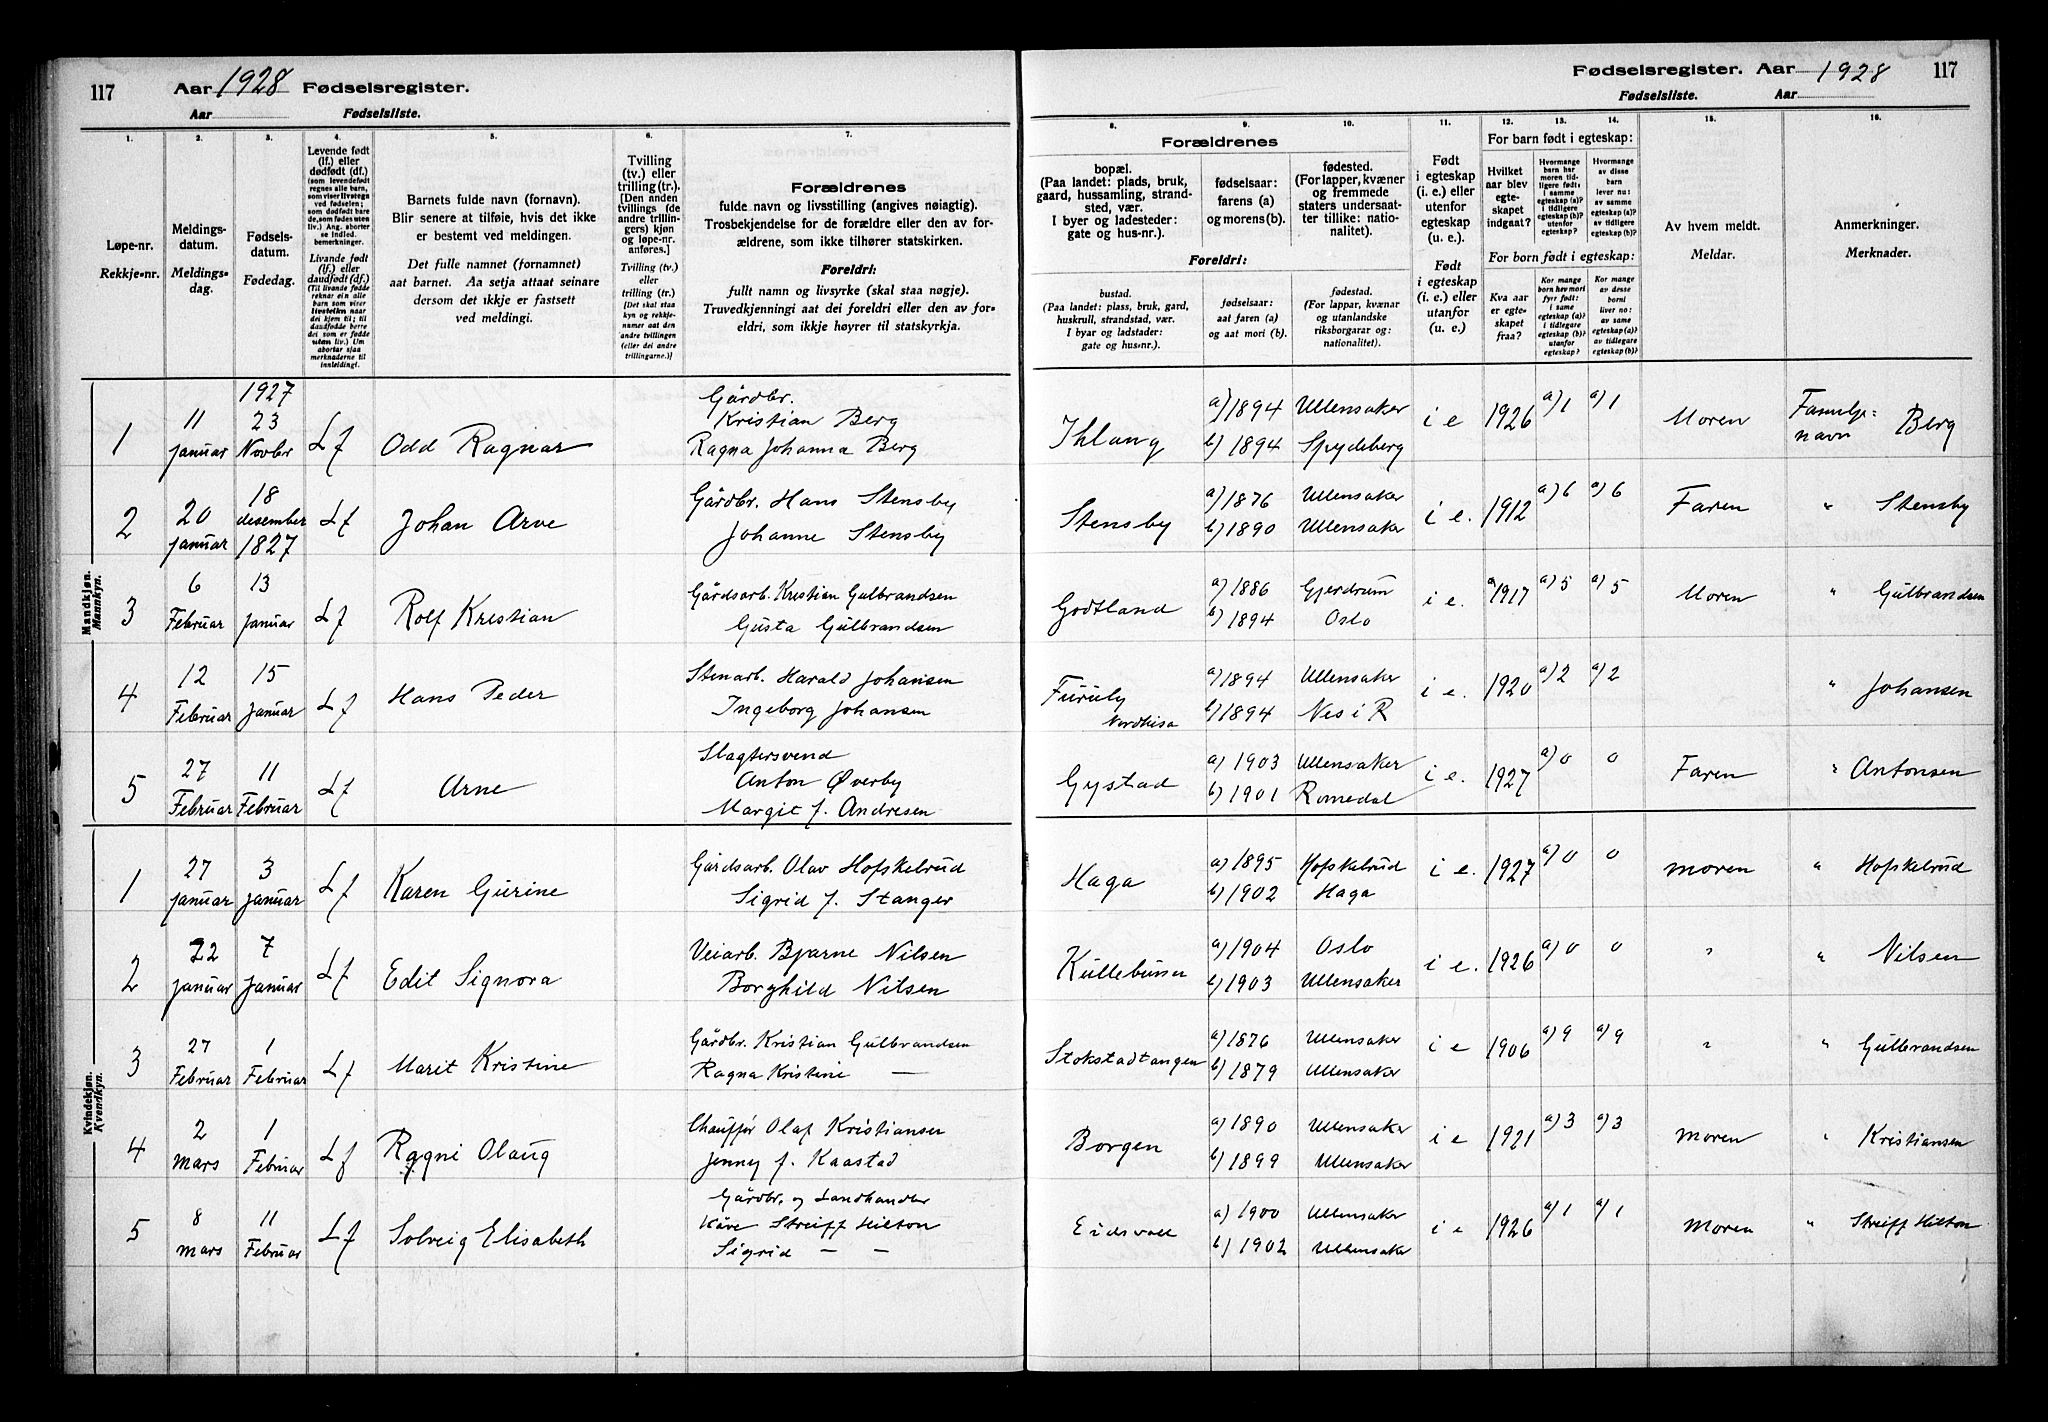 117
Aar 1928 Fødselsregister.
Aar Fødselsliste.
1. 2. 3. 4. 5. 6. 7.
Løpe-nr.
Rekkje-nr.
Meldings-
datum.
Meldings-
dag.
Fødsels-
datum.
Fødedag.
Levende født
(lf.) eller
dødfødt (df.)
Barnets fulde navn (fornavn).
Blir senere at tilføie, hvis det ikke
er bestemt ved meldingen.
Det fulle namnet (fornamnet)
aat barnet. Aa setja attaat seinare
dersom det ikkje er fastsett
ved meldingi.
Tvilling
(tv.) eller
trilling (tr.).
[Den anden
tvillings (de
andre trillin-
gers) kjøn
og løpe-nr.
anføres.]
Tvilling (tv.)
eller
trilling (tr.)
[Det skal staa
kyn og rekkje-
numer aat den
andre tvillingen
(eller dei andre
trillingarne.)]
Forældrenes
fulde navn og livsstilling (angives nøiagtig).
Trosbekjendelse for de forældre eller den av for-
ældrene, som ikke tilhører statskirken.
Foreldri:
fullt namn og livsyrke (skal staa nøgje).
Truvedkjenningi aat dei foreldri eller den av for-
eldri, som ikkje høyrer til statskyrkja.
Mandkjøn.
Mannkyn.
1 11 januar 1927 23 Novbr Lf Odd Ragnar Gårdbr. Kristian Berg
Ragna Johanna Berg
2 20 januar 18 desember 1827 Lf Johan Arve Gårdbr. Hans Stensby
Johanne Stensby
3 6 Februar 13 januar Lf Rolf Kristian Gårdsarb. Kristian Gulbrandsen
Gusta Gulbrandsen
4 12 Februar 15 januar Lf Hans Peder Stenarb. Harald Johansen
Ingeborg Johansen
5 27 Februar 11 Februar Lf Arne Slagtersvend
Anton Øverby
Margit J. Andresen
Kvindekjøn.
Kvendkyn.
1 27 januar 3 januar Lf Karen Gurine Gårdsarb. Olav Hofskelrud
Sigrid J. Stanger
2 22 januar 7 januar Lf Edit Signora Veiarb. Bjarne Nilsen
Borghild Nilsen
3 27 Februar 1 Februar Lf Marit Kristine Gårdbr. Kristian Gulbrandsen
Ragna Kristine —
4 2 mars 1 Februar Lf Ragni Olaug Chauffør Olaf Kristiansen
Jenny f. Kaastad
5 8 mars 11 Februar Lf Solveig Elisabeth Gårdbr. og Landhandler
Kåre Streiff Hilton
Sigrid — —
Fødselsregister. Aar 1928 117
Fødselsliste. Aar
8. 9. 10. 11. 12. 13. 14. 15. 16.
Forældrenes
bopæl.
(Paa landet: plads, bruk,
gaard, hussamling, strand-
sted, vær.
I byer og ladesteder:
gate og hus-nr.).
fødselsaar:
farens (a)
og morens (b).
fødested.
(For lapper, kvæner
og fremmede
staters undersaat-
ter tillike: natio-
nalitet).
Foreldri:
bustad.
(Paa landet: plass, bruk, gard,
huskrull, strandstad, vær.
I byar og ladstader:
gate og hus-nr.).
fødselsaar:
aat faren (a)
og aat mori (b).
fødestad.
(For lappar, kvænar
og utanlandske
riksborgarar og:
nationalitet).
Født
i egteskap
(i. e.) eller
utenfor
egteskap
(u. e.).
Født
i egteskap
(i. e.) eller
utanfor
(u. e.).
For barn født i egteskap:
Hvilket
aar blev
egte-
skapet
indgaat?
For born født i egteskap:
Kva aar
er egte-
skapet
fraa?
Av hvem meldt.
Meldar.
Anmerkninger.
Merknader.
Ihlang a) 1894 Ullensaker i e 1926 a) 1 a) 1 Moren Familje-navn Berg
b) 1894 Spydeberg
Stensby a) 1876 Ullensaker i e. 1912 a) 6 a) 6 Faren " Stensby
b) 1890 Ullensaker
Godtland a) 1886 Gjerdrum i e. 1917 a) 5 a) 5 Moren " Gulbrandsen
b) 1894 Oslo
Furuly Nordkisa a) 1894 Ullensaker i e. 1920 a) 2 a) 2 " Johansen
b) 1894 Nes i R
Gystad a) 1903 Ullensaker i e. 1927 a) 0 0 Faren " Antonsen
b) 1901 Romedal
Haga a) 1895 Hofskelrud i e. 1927 a) 0 0 moren " Hofskelrud
b) 1902 Haga
a) 1904 Oslo i e. 1926 a) 0 0 " " Nilsen
b) 1903 Ullensaker
Stokstadtangen a) 1876 Ullensaker i e 1906 a) 9 a) 9 " " Gulbrandsen
b) 1879 Ullensaker
Borgen a) 1890 Ullensaker i e 1921 a) 3 a) 3 moren " Kristiansen
b) 1899 Ullensaker
Eidsvoll a) 1900 Ullensaker i e 1926 a) 1 a) 1 moren " Streiff Hilton
b) 1902 Ullensaker